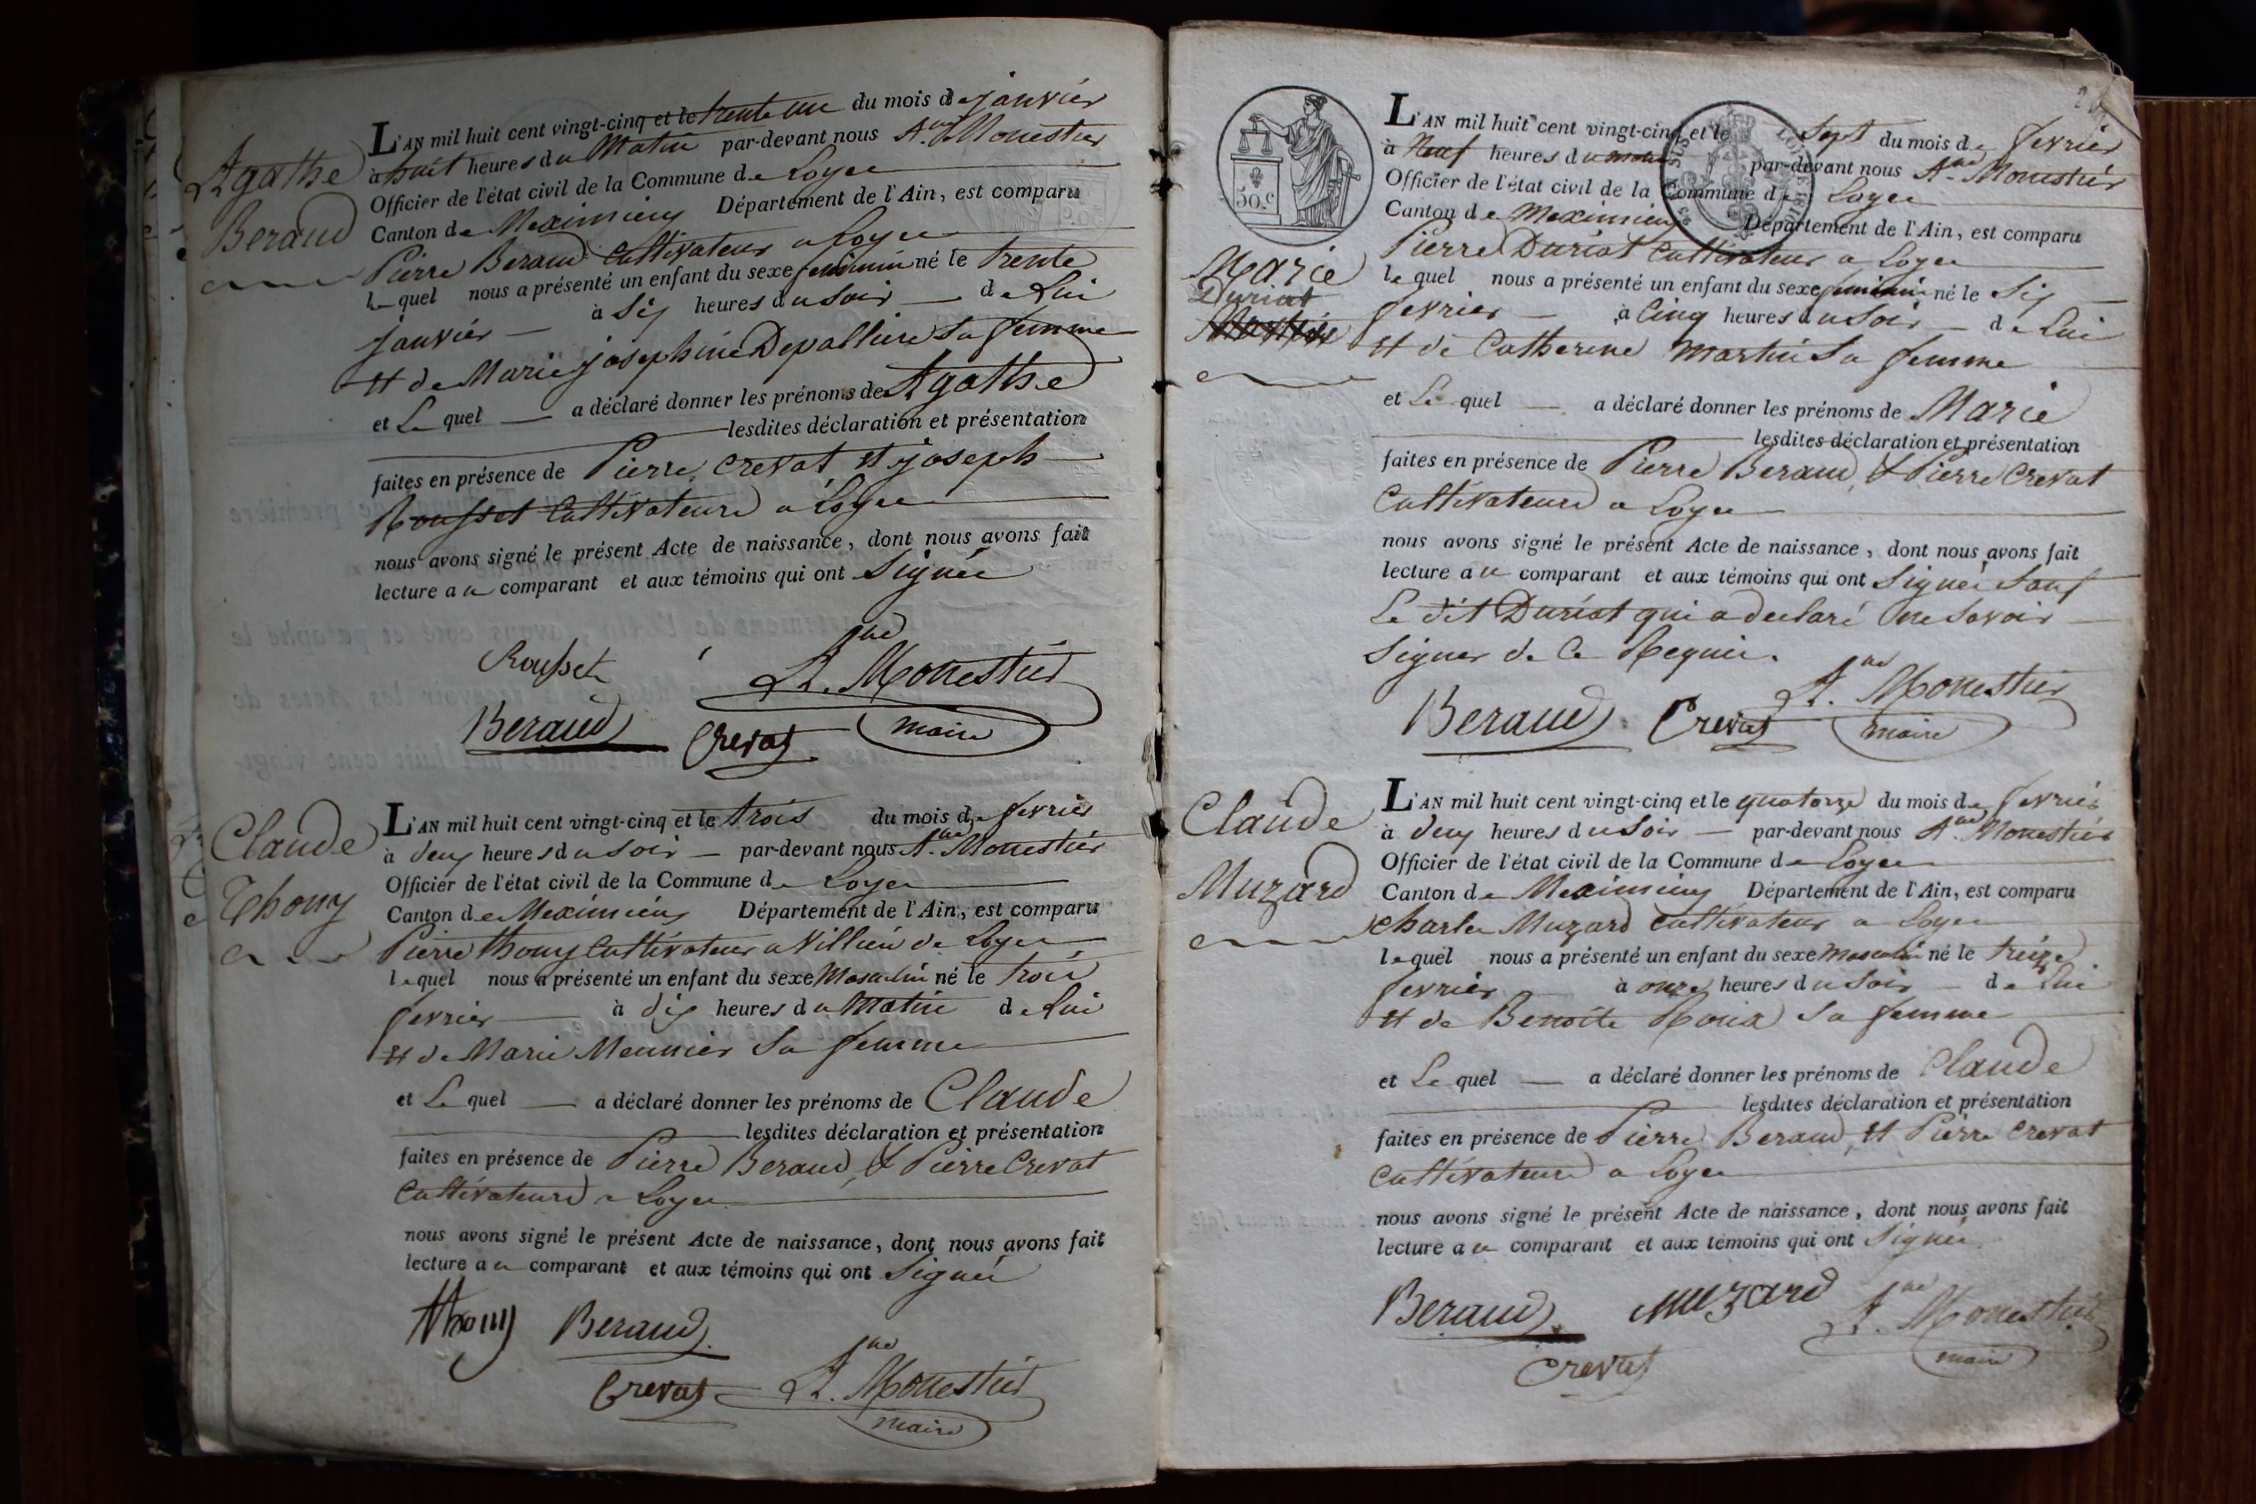 Agathe
Beraud
L'AN mil huit cent vingt-cinq et le trente un du mois de janvier
à huit heures du Matin par-devant nous A.ne Monestier
Officier de l'état civil de la Commune de Loyes
Canton de Meximieux Département de l'Ain, est comparu
Pierre Beraud Cultivateur a Loyes
lequel nous a présenté un enfant du sexe feminin né le trente
janvier à Six heures du Soir de Lui
et de Marie josephine Depalliere Sa femme
et Le quel a déclaré donner les prénoms de Agathe
lesdites déclaration et présentation
faites en présence de Pierre Crevat et joseph
Rousset Cultivateurs a Loyes
nous avons signé le présent Acte de naissance, dont nous avons fait
lecture au comparant et aux témoins qui ont Signés
Rousset A.ne Monestier
Beraud Crevat maire
Claude
Thomy
L'AN mil huit cent vingt-cinq et le trois du mois de fevrier
à deux heures du Soir par-devant nous A.ne Monestier
Officier de l'état civil de la Commune de Loyes
Canton de Meximieux Département de l'Ain, est comparu
Pierre thomy Cultivateur a Villieu de Loyes
lequel nous a présenté un enfant du sexe Masculin né le trois
fevrier à dix heures du Matin de Lui
et de Marie Meunier Sa femme
et Le quel a déclaré donner les prénoms de Claude
lesdites déclaration et présentation
faites en présence de Pierre Beraud, & Pierre Crevat
Cultivateurs a Loyes
nous avons signé le présent Acte de naissance, dont nous avons fait
lecture au comparant et aux témoins qui ont Signés
thomy Beraud
Crevat A.ne Monestier
maire
50.c
Marie
Duriat
L'AN mil huit cent vingt-cinq et le Sept du mois de fevrier
à Neuf heures du matin par-devant nous A.ne Monestier
Officier de l'état civil de la Commune de Loyes
Canton de Meximieux Département de l'Ain, est comparu
Pierre Duriat Cultivateur a Loyes
lequel nous a présenté un enfant du sexe feminin né le Six
fevrier à Cinq heures du Soir de Lui
et de Catherine Martin Sa femme
et Le quel a déclaré donner les prénoms de Marie
lesdites déclaration et présentation
faites en présence de Pierre Beraud, & Pierre Crevat
Cultivateurs a Loyes
nous avons signé le présent Acte de naissance, dont nous avons fait
lecture au comparant et aux témoins qui ont Signés Sauf
Le dit Duriat qui a declaré ne Savoir
Signer de Ce Requis.
Beraud Crevat A.ne Monestier
maire
Claude
Muzard
L'AN mil huit cent vingt-cinq et le quatorze du mois de fevrier
à deux heures du Soir par-devant nous A.ne Monestier
Officier de l'état civil de la Commune de Loyes
Canton de Meximieux Département de l'Ain, est comparu
Charles Muzard Cultivateur a Loyes
lequel nous a présenté un enfant du sexe masculin né le treize
fevrier à onze heures du Soir de Lui
et de Benoite Roux Sa femme
et Le quel a déclaré donner les prénoms de Claude
lesdites déclaration et présentation
faites en présence de Pierre Beraud, et Pierre Crevat
Cultivateurs a Loyes
nous avons signé le présent Acte de naissance, dont nous avons fait
lecture au comparant et aux témoins qui ont Signés
Beraud Muzard A.ne Monestier
Crevat maire